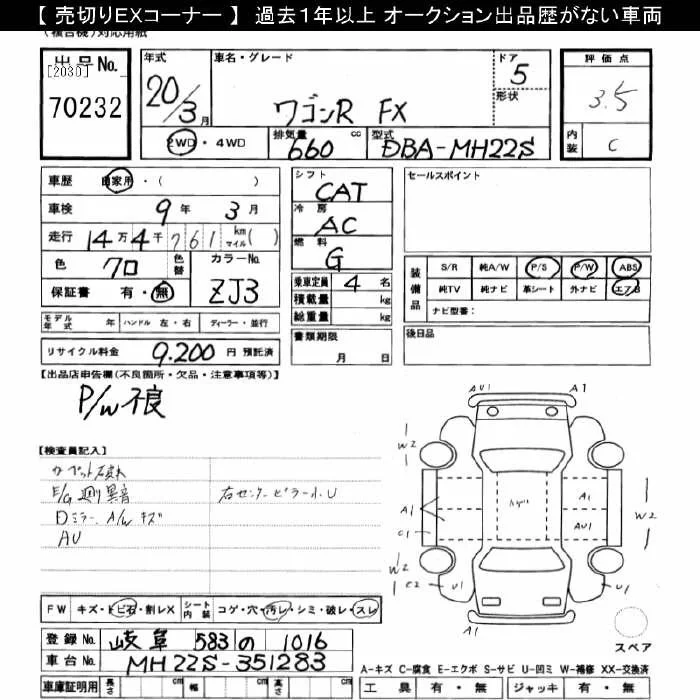 【 売切りEXコーナー 】 過去１年以上 オークション出品歴がない車両
(複合機)対応用紙
出品No.
[2030]
70232
年式
20/3月
車名・グレード
ワゴンR FX
ドア
5
形状
評価点
3.5
内装
C
2WD・4WD
排気量
660 cc
型式
DBA-MH22S
車歴 自家用・( )
車検 9年 3月
走行 14万4千761 km マイル( )
色 クロ 色替 カラーNo. ZJ3
保証書 有・無
シフト
CAT
冷房
AC
燃料
G
乗車定員 4 名
積載量 kg
総重量 kg
セールスポイント
装備品
S/R 純A/W P/S P/W ABS
純TV 純ナビ 革シート 外ナビ エアB
ナビ型番：
モデル年式 年 ハンドル 左・右 ディーラー・並行
リサイクル料金 9.200 円 預託済
書類期限
月 日
後日品
【出品店申告欄(不良箇所・欠品・注意事項等)】
P/W不良
【検査員記入】
E/G 異音
Dミラー A/W キズ
右センターピラー小U
AU
AU1 A1
W2 W2
A1 C1
A1
AU1
W2
W2
C2 U1 U1
FW キズ・トビ石・割レX シート内装 コゲ・穴・汚レ・シミ・破レ・スレ
スペア
登録No. 岐阜 583 の 1016
車台No. MH22S-351283
A-キズ C-腐食 E-エクボ S-サビ U-凹ミ W-補修 XX-交換済
車庫証明用 長さ cm 幅 cm 高さ cm
工具 有・無 ジャッキ 有・無